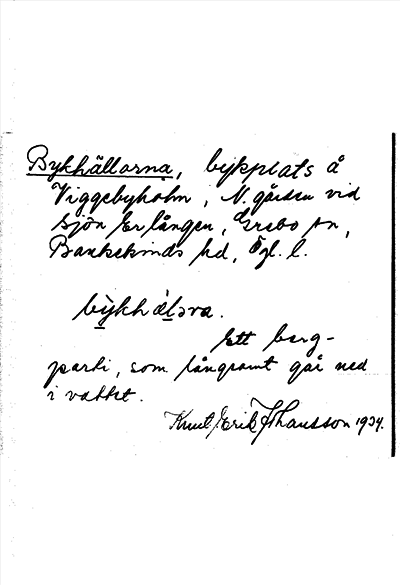 Bykhällarna, bykplats å
Viggebyholm, N. gården vid
sjön Erlången, Grebo sn,
Bankekinds hd, Ögl. l.
býkhäĺəra.
Ett berg-
parti, som långsamt går ned
i vattnet.
Knut Erik Johansson 1934.